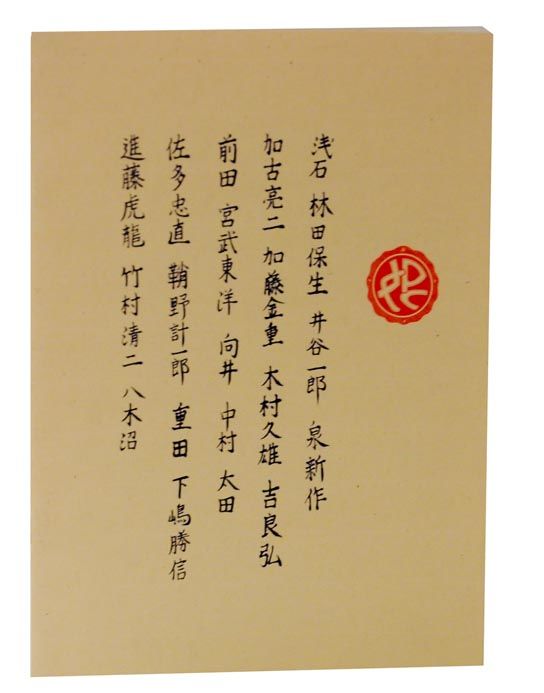 浅石 林田保生 井谷一郎 泉新作
加古亮二 加藤金重 木村久雄 吉良弘
前田 宮武東洋 向井 中村 太田
佐多忠直 鞘野計一郎 重田 下嶋勝信
進藤虎龍 竹村清二 八木沼